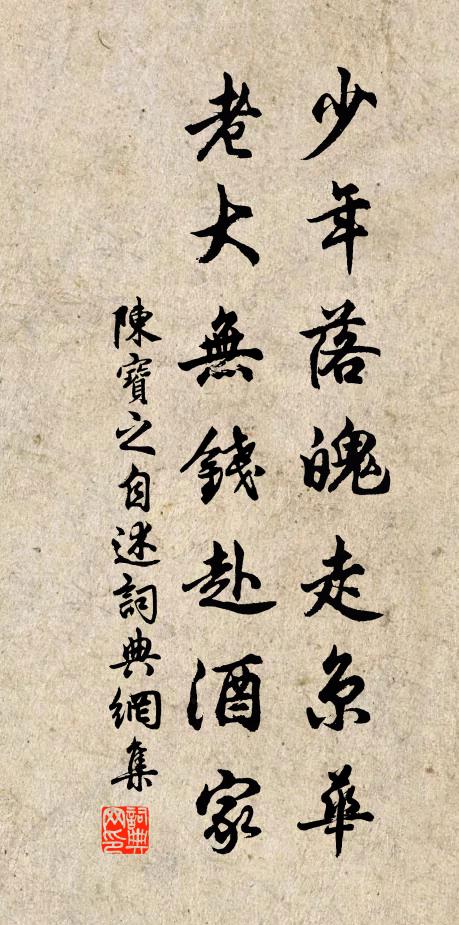 少年落魄走京華
老大無錢赴酒家
陳寶之自述詞典網集
詞典
网印